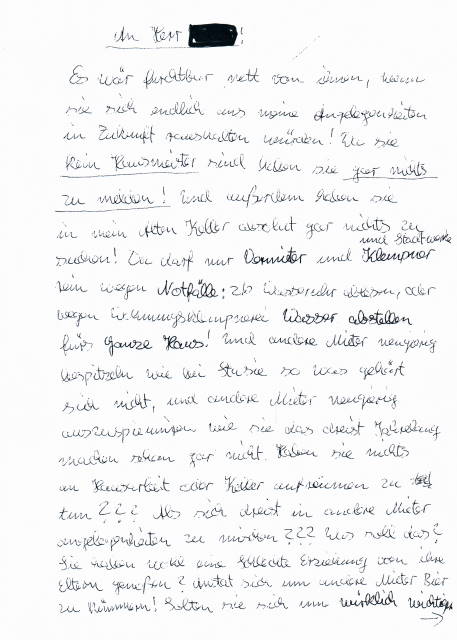 An Herr !
Es wär furchtbar nett von ihnen, wenn
sie sich endlich aus meine Angelegenheiten
in Zukunft raushalten würden! Da sie
kein Hausmeister sind haben sie gar nichts
zu melden! Und außerdem haben sie
in mein Alten Keller absolut gar nichts zu
suchen! Da darf nur Vermieter und Klempner und Stadtwerke
rein wegen Notfälle: zb Wasseruhr ablesen, oder
wegen Wasser abstellen
fürs ganze Haus! Und andere Mieter neugierig
bespitzeln wie bei Stasie so was gehört
sich nicht, und andere Mieter neugierig
auszuspionieren wie sie das dreist Jahrelang
machen schon gar nicht. Haben sie nichts
an Hausarbeit oder Keller aufräumen zu
tun??? Als sich dreist in andere Mieter
angelegenheiten zu mischen??? Was soll das?
Sie haben wohl eine schlechte Erziehung von ihre
Eltern genoßen? Anstat sich um andere Mieter Bier
zu kümmern! Solten sie sich um wirklich wichtiges
→